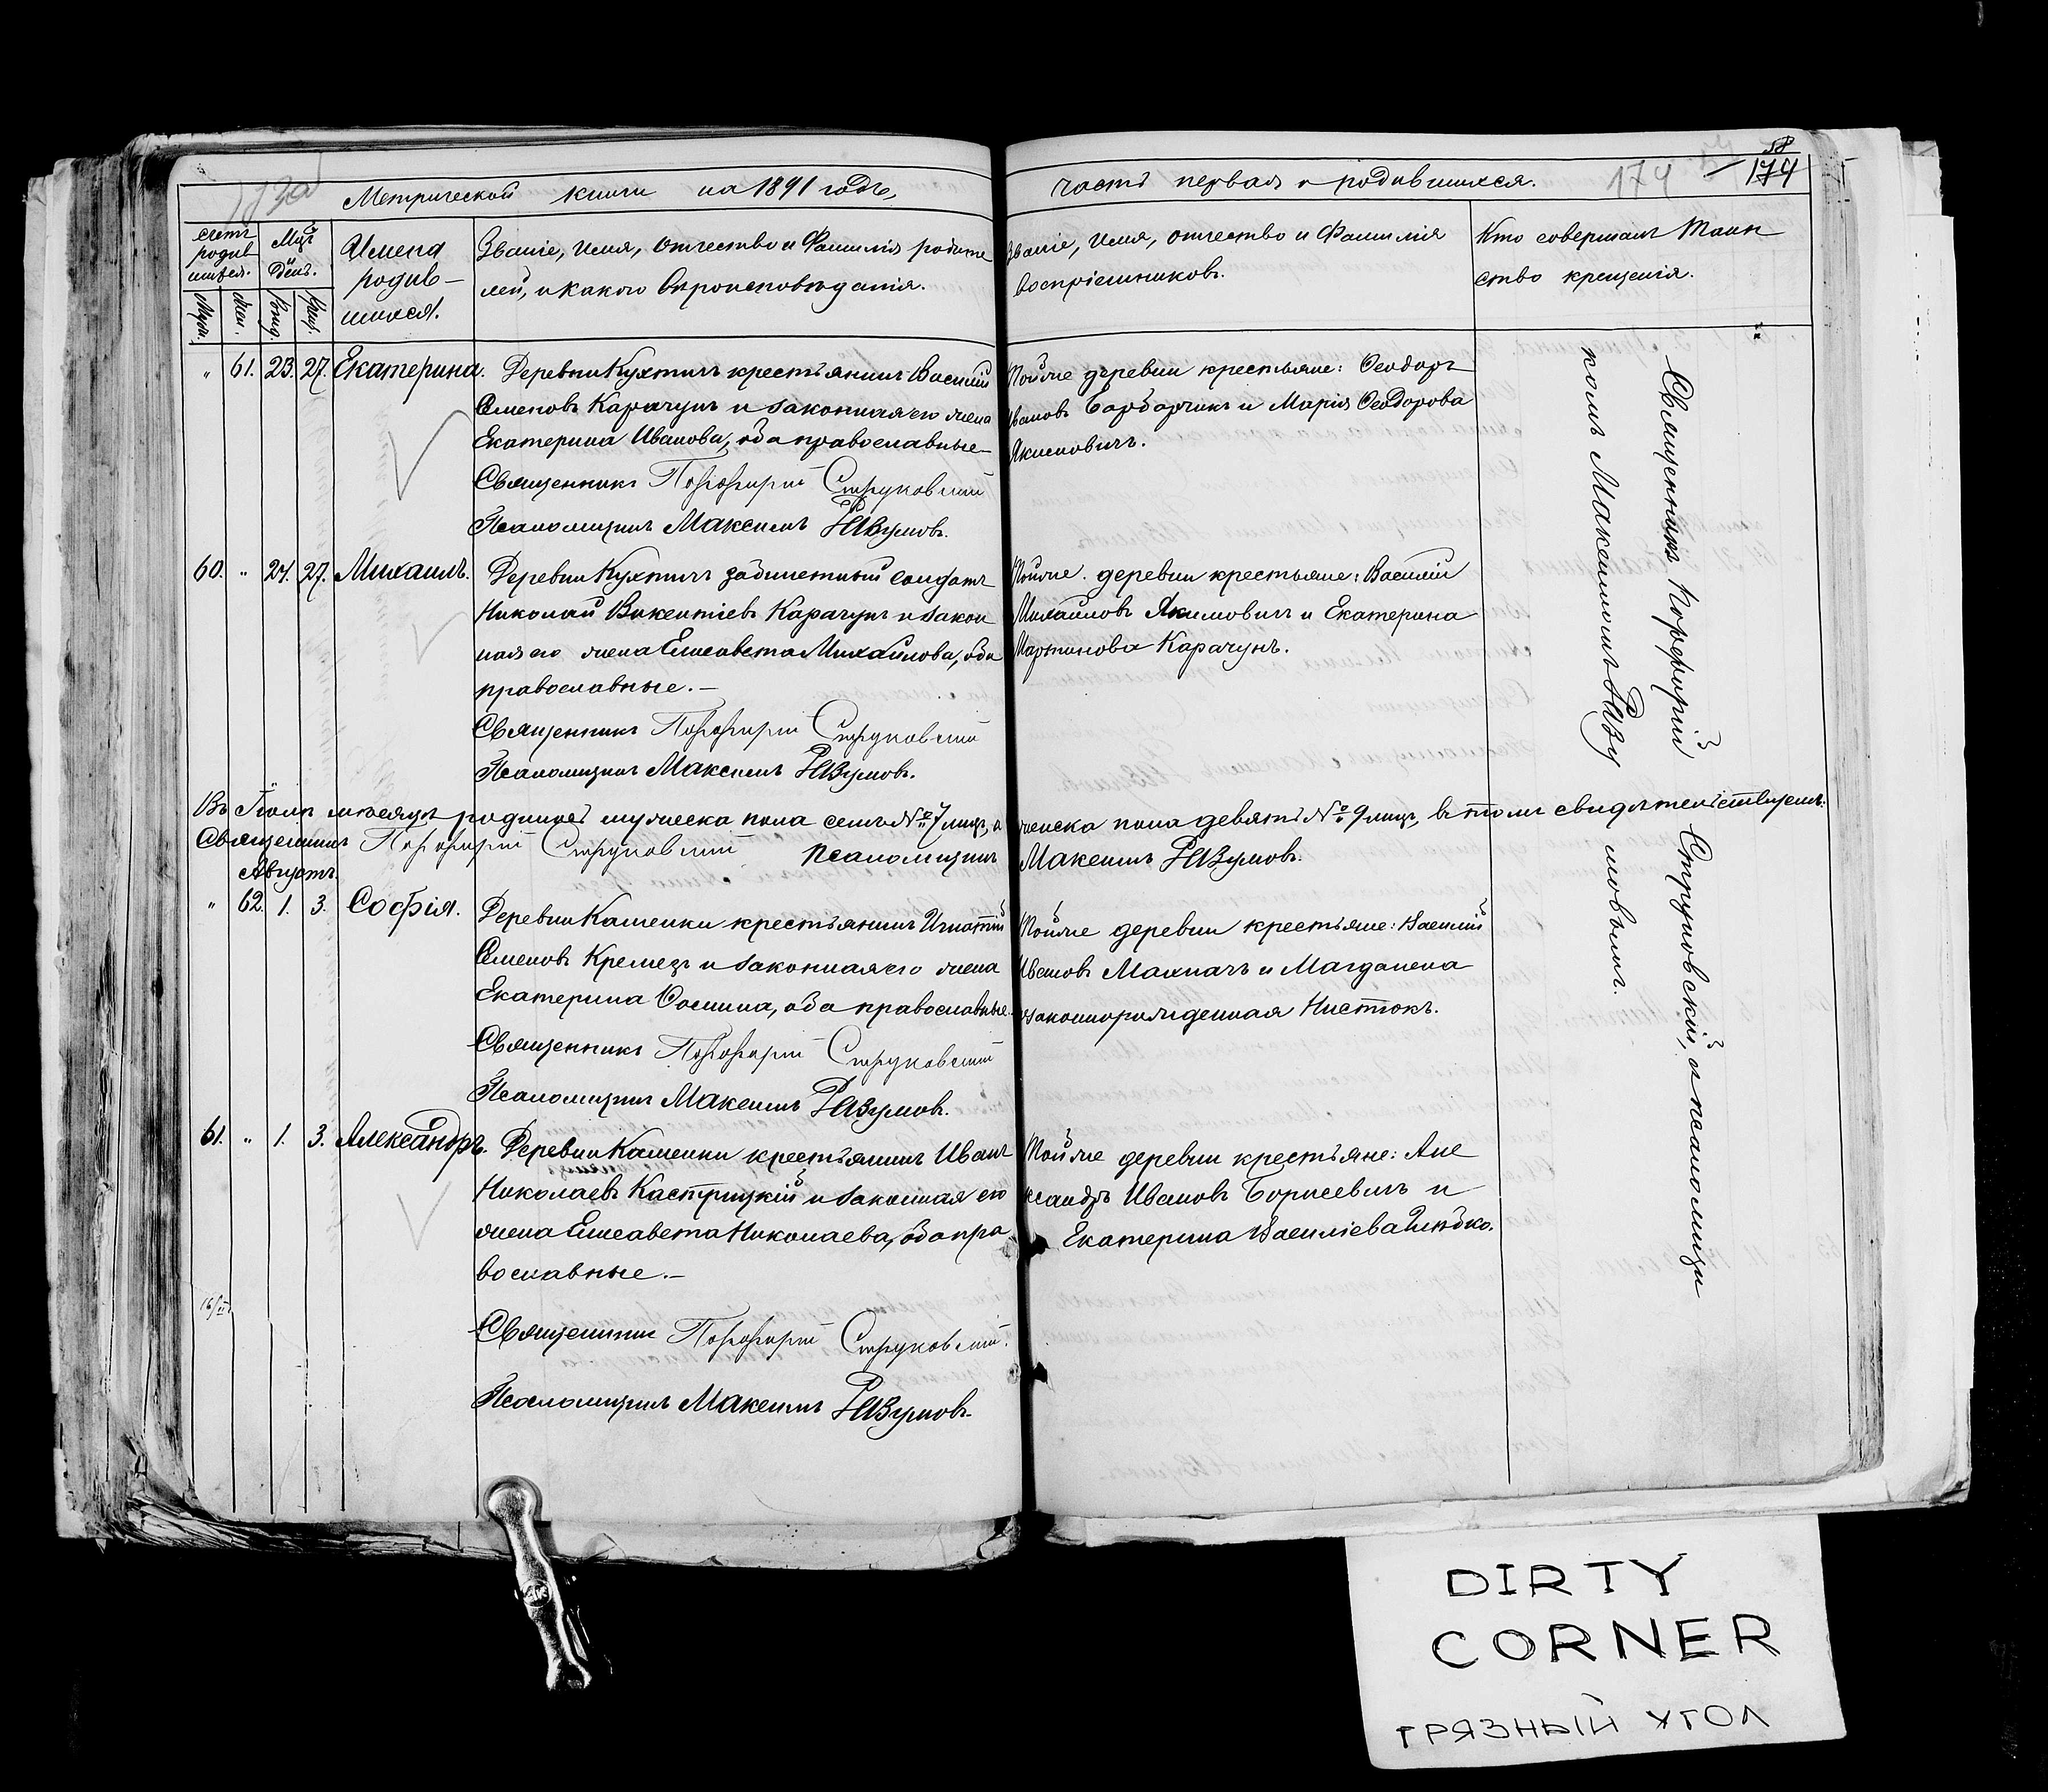 Метрической книги на 1891 годъ,
часть первая о родившихся.
174
58
174
Счетъ родив шихся.
Муж.
Жен.
Мцъ День.
Рожд.
Крещ.
Имена
родив-
шихся.
Званіе, имя, отчество и фамилія родите
лей, и какого вѣроисповѣданія.
Званіе, имя, отчество и фамилія
воспріемниковъ.
Кто совершалъ таин
ство крещенія.
" 61. 23. 27. Екатерина.
Деревни Кухтичъ крестьянинъ Василій
Семеновъ Карачунъ и законная его жена
Екатерина Иванова, оба православные.-
Священникъ Порфирій Струковскій
Псаломщикъ Максимъ Наумовъ.
Тойже деревни крестьяне: Ѳеодоръ
Ивановъ Барбарчикъ и Марія Ѳеодорова
Якимовичъ.
60. " 24. 27. Михаилъ.
Деревни Кухтичъ солдатъ
Николай Викентіевъ Карачунъ и закон
ная его жена Елисавета Михайлова, оба
православные.-
Священникъ Порфирій Струковскій
Псаломщикъ Максимъ Наумовъ.
Тойже деревни крестьяне: Василій
Михайловъ Якимовичъ и Екатерина
Мартинова Карачунъ.
Въ Іюлѣ мѣсяцѣ родилось мужеска пола семь № 7 лицъ, а женска пола девять № 9 лицъ, въ томъ свидѣтельствуемъ:
Священникъ Порфирій Струковскій Псаломщикъ Максимъ Наумовъ.
Августъ.
" 62. 1. 3. Софія.
Деревни Каменки крестьянинъ Игнатій
Семеновъ Кремезъ и законная его жена
Екатерина оба православные.
Священникъ Порфирій Струковскій
Псаломщикъ Максимъ Наумовъ.
Тойже деревни крестьяне: Василій
Ивановъ Махначъ и Магдалена
законнорожденная Нистюкъ.
61. " 1. 3. Александръ.
Деревни Каменки крестьянинъ Иванъ
Николаевъ Кастрицкій и законная его
жена Елисавета Николаева, оба пра
вославные.-
Священникъ Порфирій Струковскій.
Псаломщикъ Максимъ Наумовъ.
Тойже деревни крестьяне: Але
ксандръ Ивановъ Борисевичъ и
Екатерина Василіева Глѣбко.
Священникъ Порфирій Струковскій, с псаломщи
комъ Максимомъ Наумовымъ.
DIRTY
CORNER
ГРЯЗНЫЙ УГОЛ